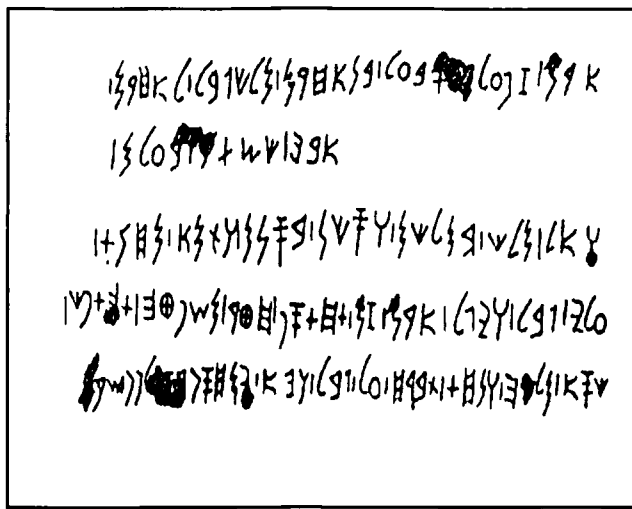 𐤀𐤓𐤍 𐤆 𐤐𐤏𐤋 𐤁𐤏𐤋 𐤁𐤍 𐤀𐤇𐤓𐤌 𐤌𐤋𐤊 𐤂𐤁𐤋 𐤋𐤀𐤇𐤓𐤌
𐤀𐤁𐤄 𐤊𐤔𐤕𐤄 𐤁𐤏𐤋𐤌
𐤅𐤀𐤋 𐤌𐤋𐤊 𐤁𐤌𐤋𐤊𐤌 𐤅𐤎𐤊𐤍 𐤁𐤎𐤍𐤌 𐤅𐤕𐤌𐤀 𐤌𐤇𐤍𐤕
𐤏𐤋𐤉 𐤂𐤁𐤋 𐤅𐤉𐤂𐤋 𐤀𐤓𐤍 𐤆𐤍 𐤕𐤇𐤕𐤎𐤐 𐤇𐤈𐤓 𐤌𐤔𐤐𐤈𐤄 𐤕𐤄𐤕𐤐𐤊
𐤊𐤎𐤀 𐤌𐤋𐤊𐤄 𐤅𐤍𐤇𐤕 𐤕𐤁𐤓𐤇 𐤏𐤋 𐤂𐤁𐤋 𐤅𐤄𐤀 𐤉𐤌𐤇 𐤎𐤐𐤓